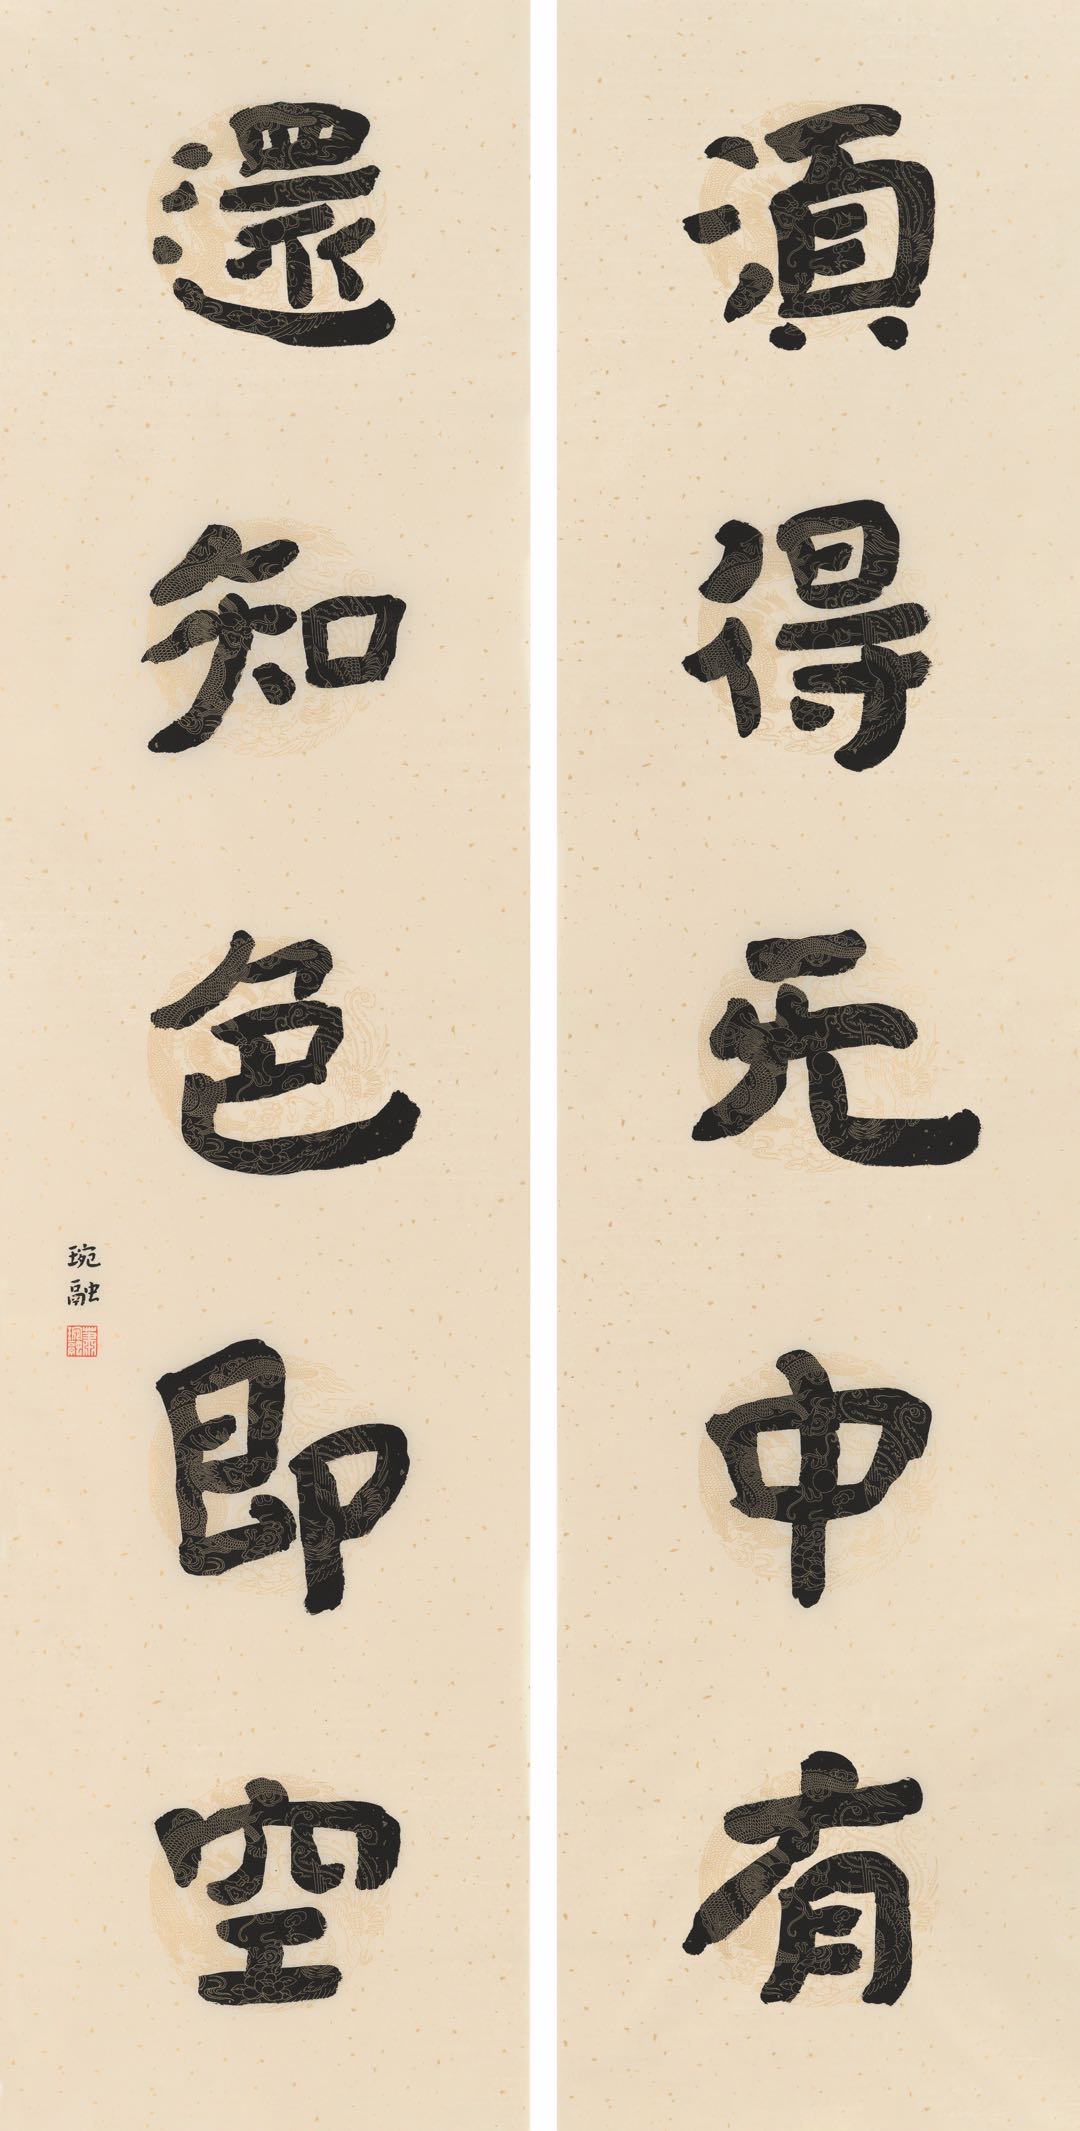 須得无中有
還知色即空
琬融